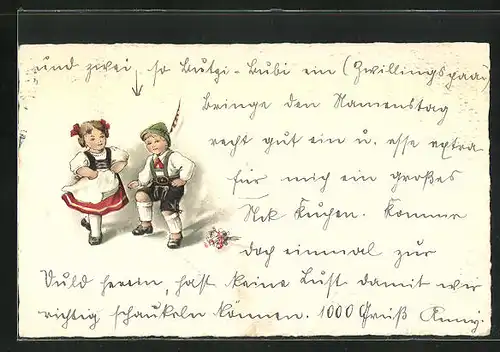 und zwei, so Butzi-Bubi ein (Zwillingspaar)
Bringe den Namenstag
recht gut ein u. esse extra
für mich ein großes
Stck Kuchen. Komme
doch einmal zur
herein, hast keine Lust damit wir
richtig schaukeln können. 1000 Grüß